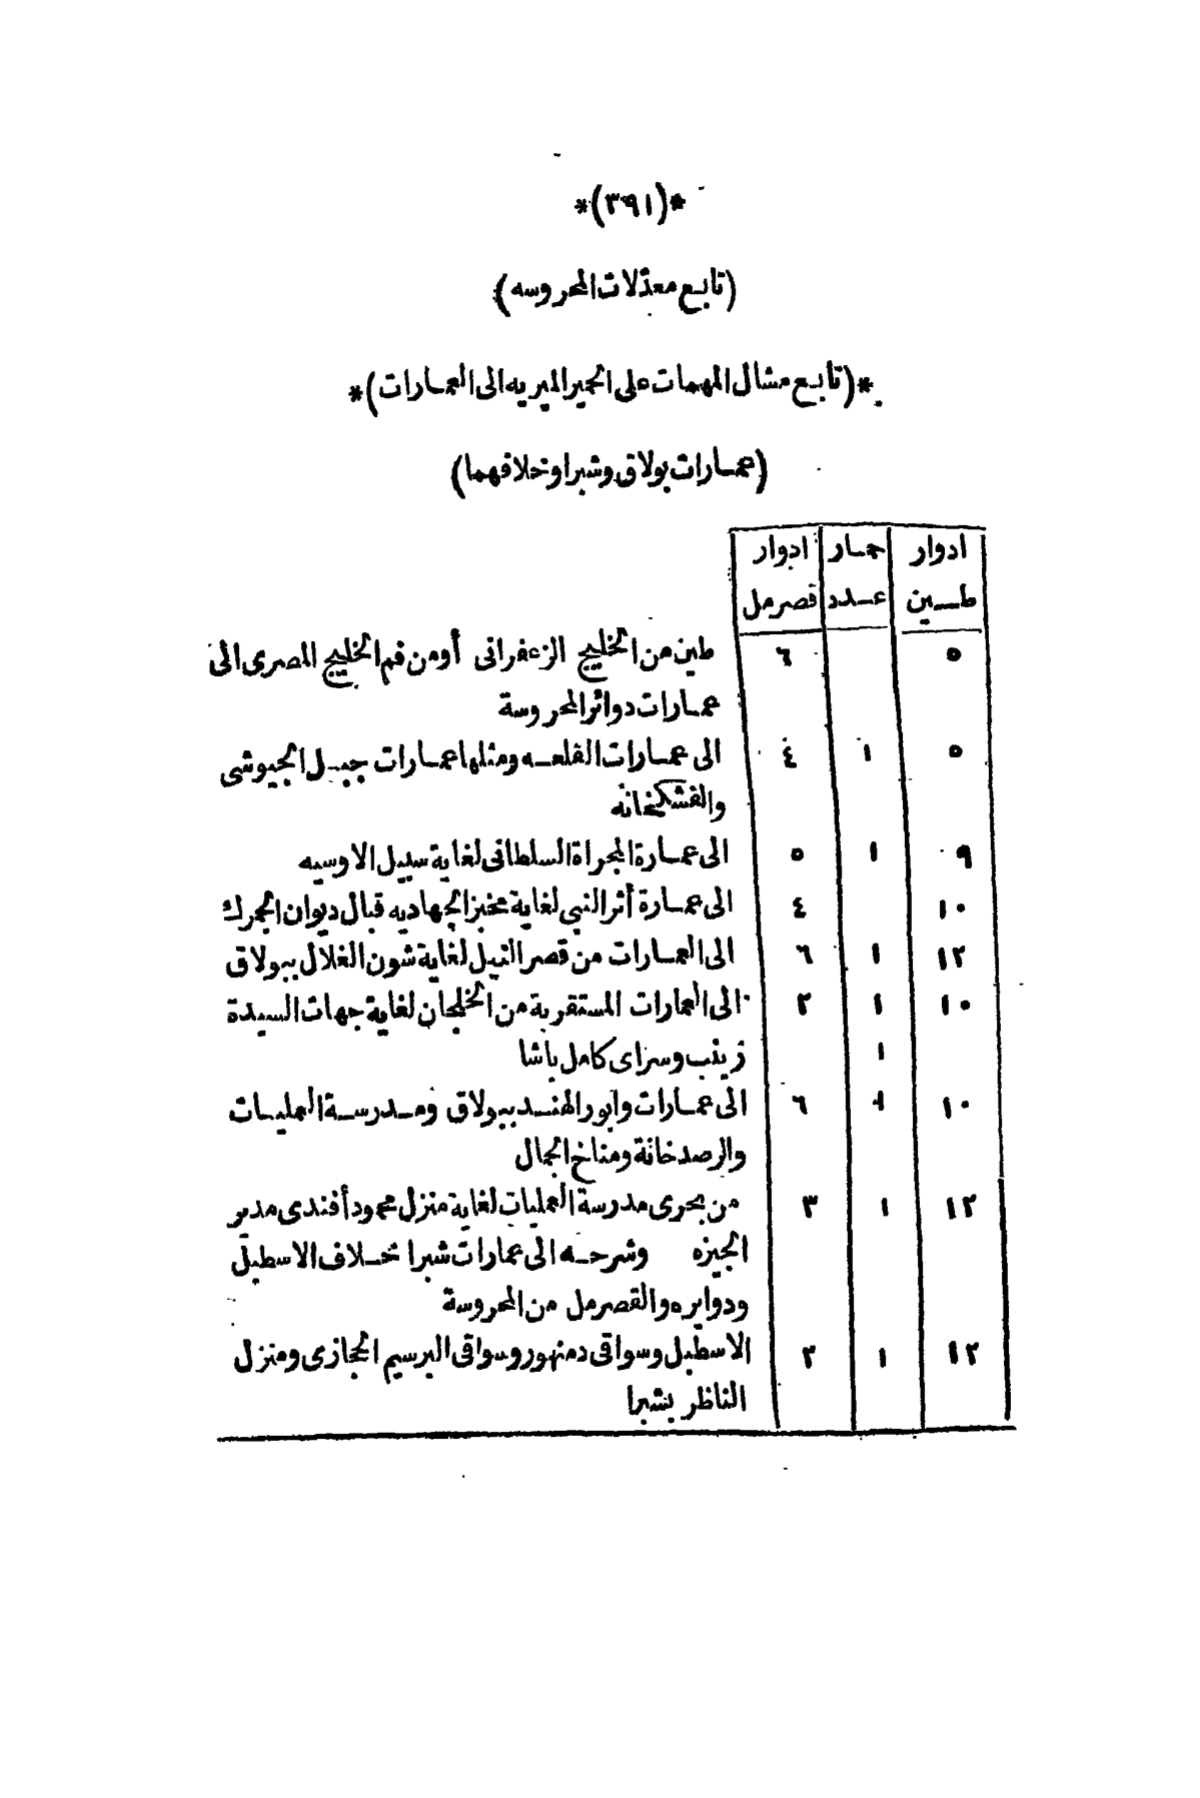 *(٣٩١)*
(تابع معدّلات المحروسه)
*(تابع مشال المهمات على الحمير الميريه الى العمارات)*
(عمارات بولاق وشبرا وخلافهما)
ادوار حمار ادوار
طين عدد قصرمل
٥ ٦ طين من الخليج الزعفرانى أومن فم الخليج المصرى الى
عمارات دوائر المحروسة
٥ ١ ٤ الى عمارات القلعه ومثلها عمارات جبل الجيوشى
والفشكخانه
٩ ١ ٥ الى عمارة المجراة السلطانى لغاية سبيل الاوسيه
١٠ ٤ الى عمارة أثر النبى لغاية مخبز الجهاديه قبال ديوان الجمرك
١٢ ١ ٦ الى العمارات من قصر النيل لغاية شون الغلال ببولاق
١٠ ١ ٢ الى العمارات المستقربة من الخلجان لغاية جهات السيدة
١ زينب وسراى كامل باشا
١٠ ١ ٦ الى عمارات وابور الهند ببولاق ومدرسة العمليات
والرصدخانة ومناخ الجمال
١٢ ١ ٣ من بحرى مدرسة العمليات لغاية منزل محمود أفندى مدير
الجيزه وشرحه الى عمارات شبرا خلاف الاسطبل
ودوايره والقصرمل من المحروسة
١٢ ١ ٢ الاسطبل وسواقى دمنهور وسواقى البرسيم الحجازى ومنزل
الناظر بشبرا